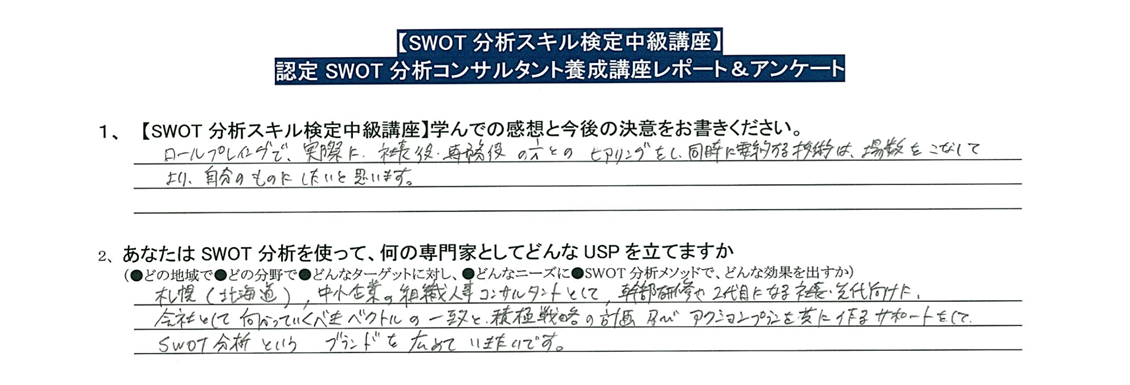 【SWOT 分析スキル検定中級講座】
認定 SWOT 分析コンサルタント養成講座レポート＆アンケート
1、 【SWOT 分析スキル検定中級講座】学んでの感想と今後の決意をお書きください。
ロールプレイングで、実際に、社長役・専務役の方とのヒアリングをし、同時に要約する技術は、場数をこなして
より、自分のものにしたいと思います。
2、 あなたは SWOT 分析を使って、何の専門家としてどんな USP を立てますか
（●どの地域で●どの分野で●どんなターゲットに対し、●どんなニーズに●SWOT 分析メソッドで、どんな効果を出すか）
札幌（北海道）、中小企業の組織人事コンサルタントとして、幹部研修や2代目になる社長・先代向けに、
会社として向かっていくべきベクトルの一致と、積極戦略の計画及びアクションプランを共に作るサポートをして、
SWOT分析という ブランドを広めていきたいです。